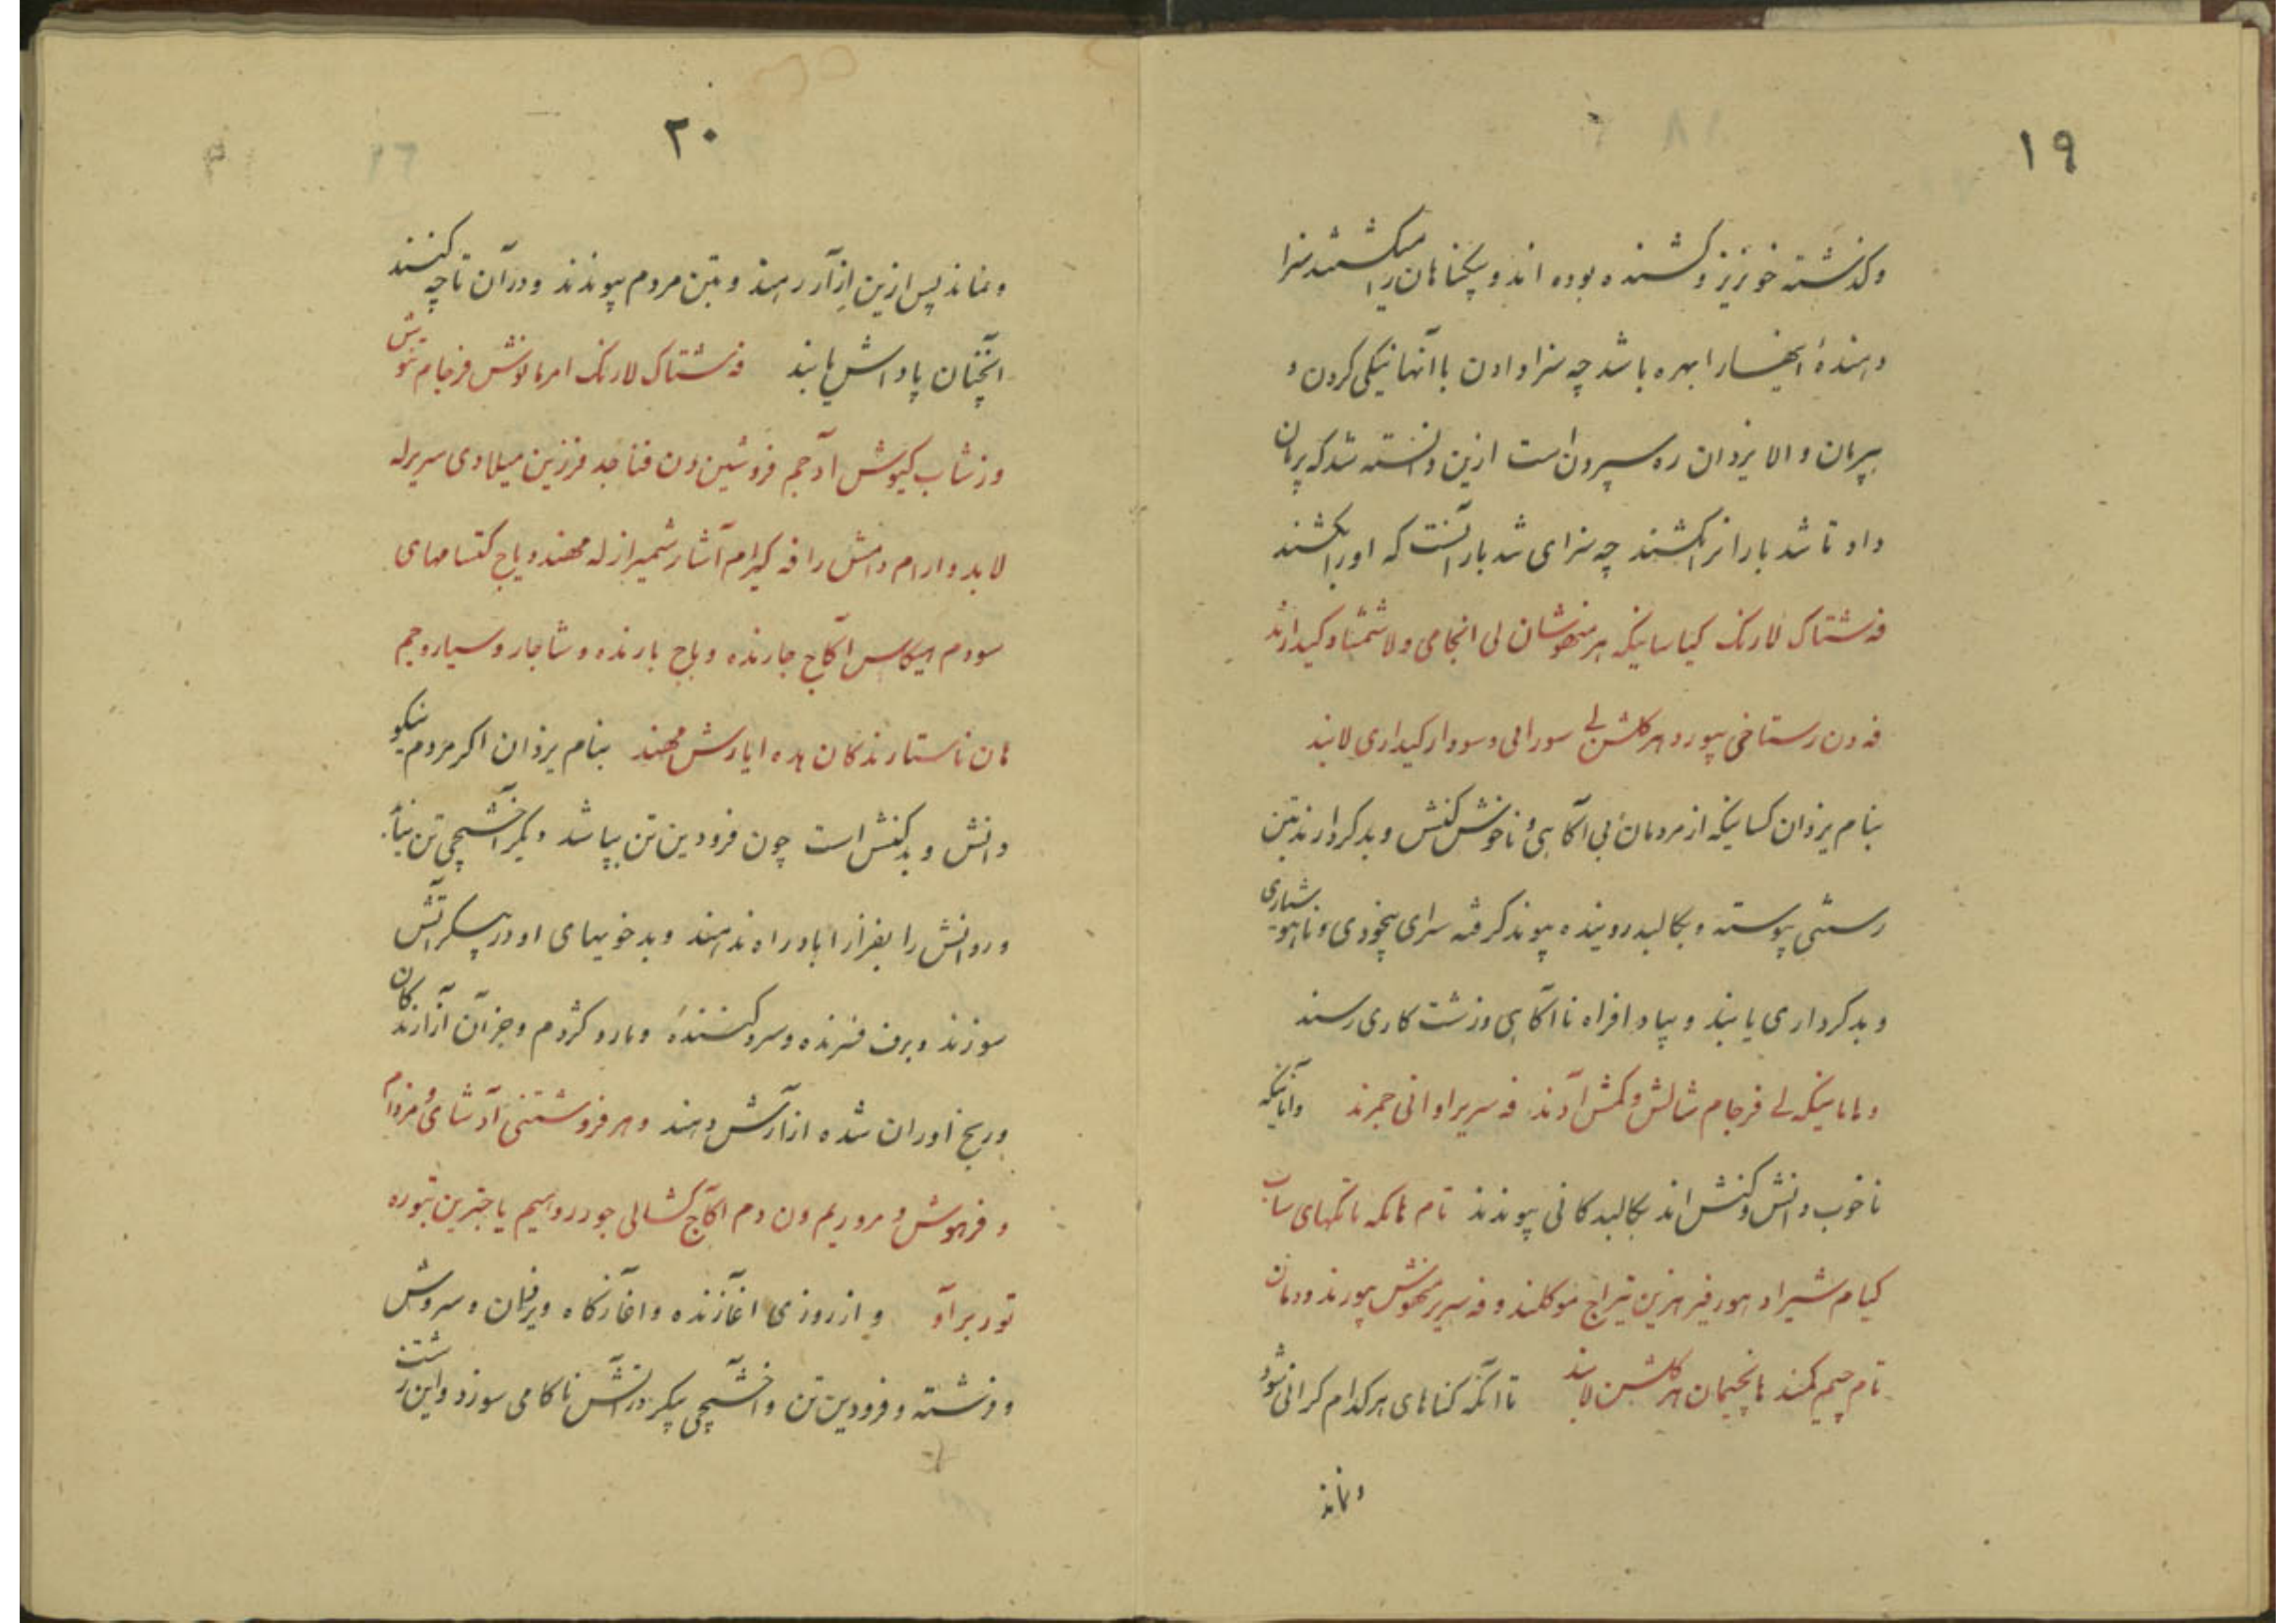 ١٩
وگذشته خونریز و کشنده بوده اند و بیگناهان را میکشتند سزا
دهندهٔ اینها را بهره باشد چه سزا دادن با آنها نیکی کردن و
بپرمان والا یزدان ره سپردن است ازین دانسته شد که پرمان
داد تا شد بار انرا بکشند چه سزای شد بار آنست که او را بکشند
فه شتاک لارنک کیاسانیکه هر منهوشان لی انجامی و لاشمشاد کیدارند
فه دن رستاخی پیورد هر کلشن لی سورابی و سودار کیداری لابند
بنام یزدان کسانیکه از مردمان بی آگاهی و ناخوش کنش و بدکردارند بتن
رستنی پیوسته و بکالبد روینده پیوند گرفته سزای بیخودی و ناهوشیاری
و بدکرداری یابند و بپاد افراه ناآگاهی و زشت کاری رسند
و مامانیکه لی فرجام شالش و کمش آدند فه سریر اوانی جمرند وآنانیکه
ناخوب دانش و کنش اند بکالبد کانی پیوندند تام هانکه هاتکهای ساب
کیام شیراد هور فیر هزین تیراج موکلند و فه سریر مهوش پیورند و دمان
تام چیم کمند هانچیمان هر کلشن لابند تا آنکه گناهای هر کدام کرانی شود
ونماند
٢٠
ونماند پس ازین ازآر رهند و بتن مردم پیوندند و در آن تا چه کنند
آنچنان پاداش یابند فه شتاک لارنک امرمانوش فرجام تنوش
وزشاب کیوش آد جم فروشین دن فناجد فرزین میلادی سریر له
لابد و ارام دامش را فه کیرام آشار شمیراز له مهند و یاج کتسامهای
سودم هیکاس اکاچ جارنده و باج بارنده و شاجار و سیار و جم
مان ناستارندکان بده ایارش مهند بنام یزدان اکر مردم نیکو
دانش و بدکنش است چون فرودین تن بپاشد دیگر آخشیجی تن نیابد
و روانش را بفراز اباد راه ندهند و بدخوییهای او در پیکر آتش
سوزند و برف فسرنده و سرد کننده و مار و کژدم و جزآن آزارندگان
و رنج آوران شده ازآرش دهند و هر فروشتنی آد شای و مزدام
و فرهوش و مروریم ون دم اکاچ کشالی جودر دراسیم یا جنبرین تبوره
تور برآد و از روزی آغازنده و اغازگاه ویزفان و سروش
و فرشته و فرودین تن و آخشیجی پیکر در آتش ناکامی سوزد و این زشت